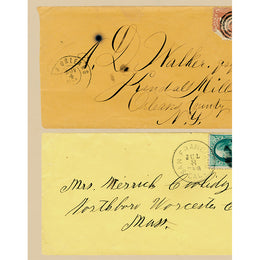 A. D. Walker, Esq
Kendall Mills
Orleans County
N.Y.
SAN FRANC
JUL
8
Mrs. Merrick Coolidg
Northboro Worcester C
Mass.